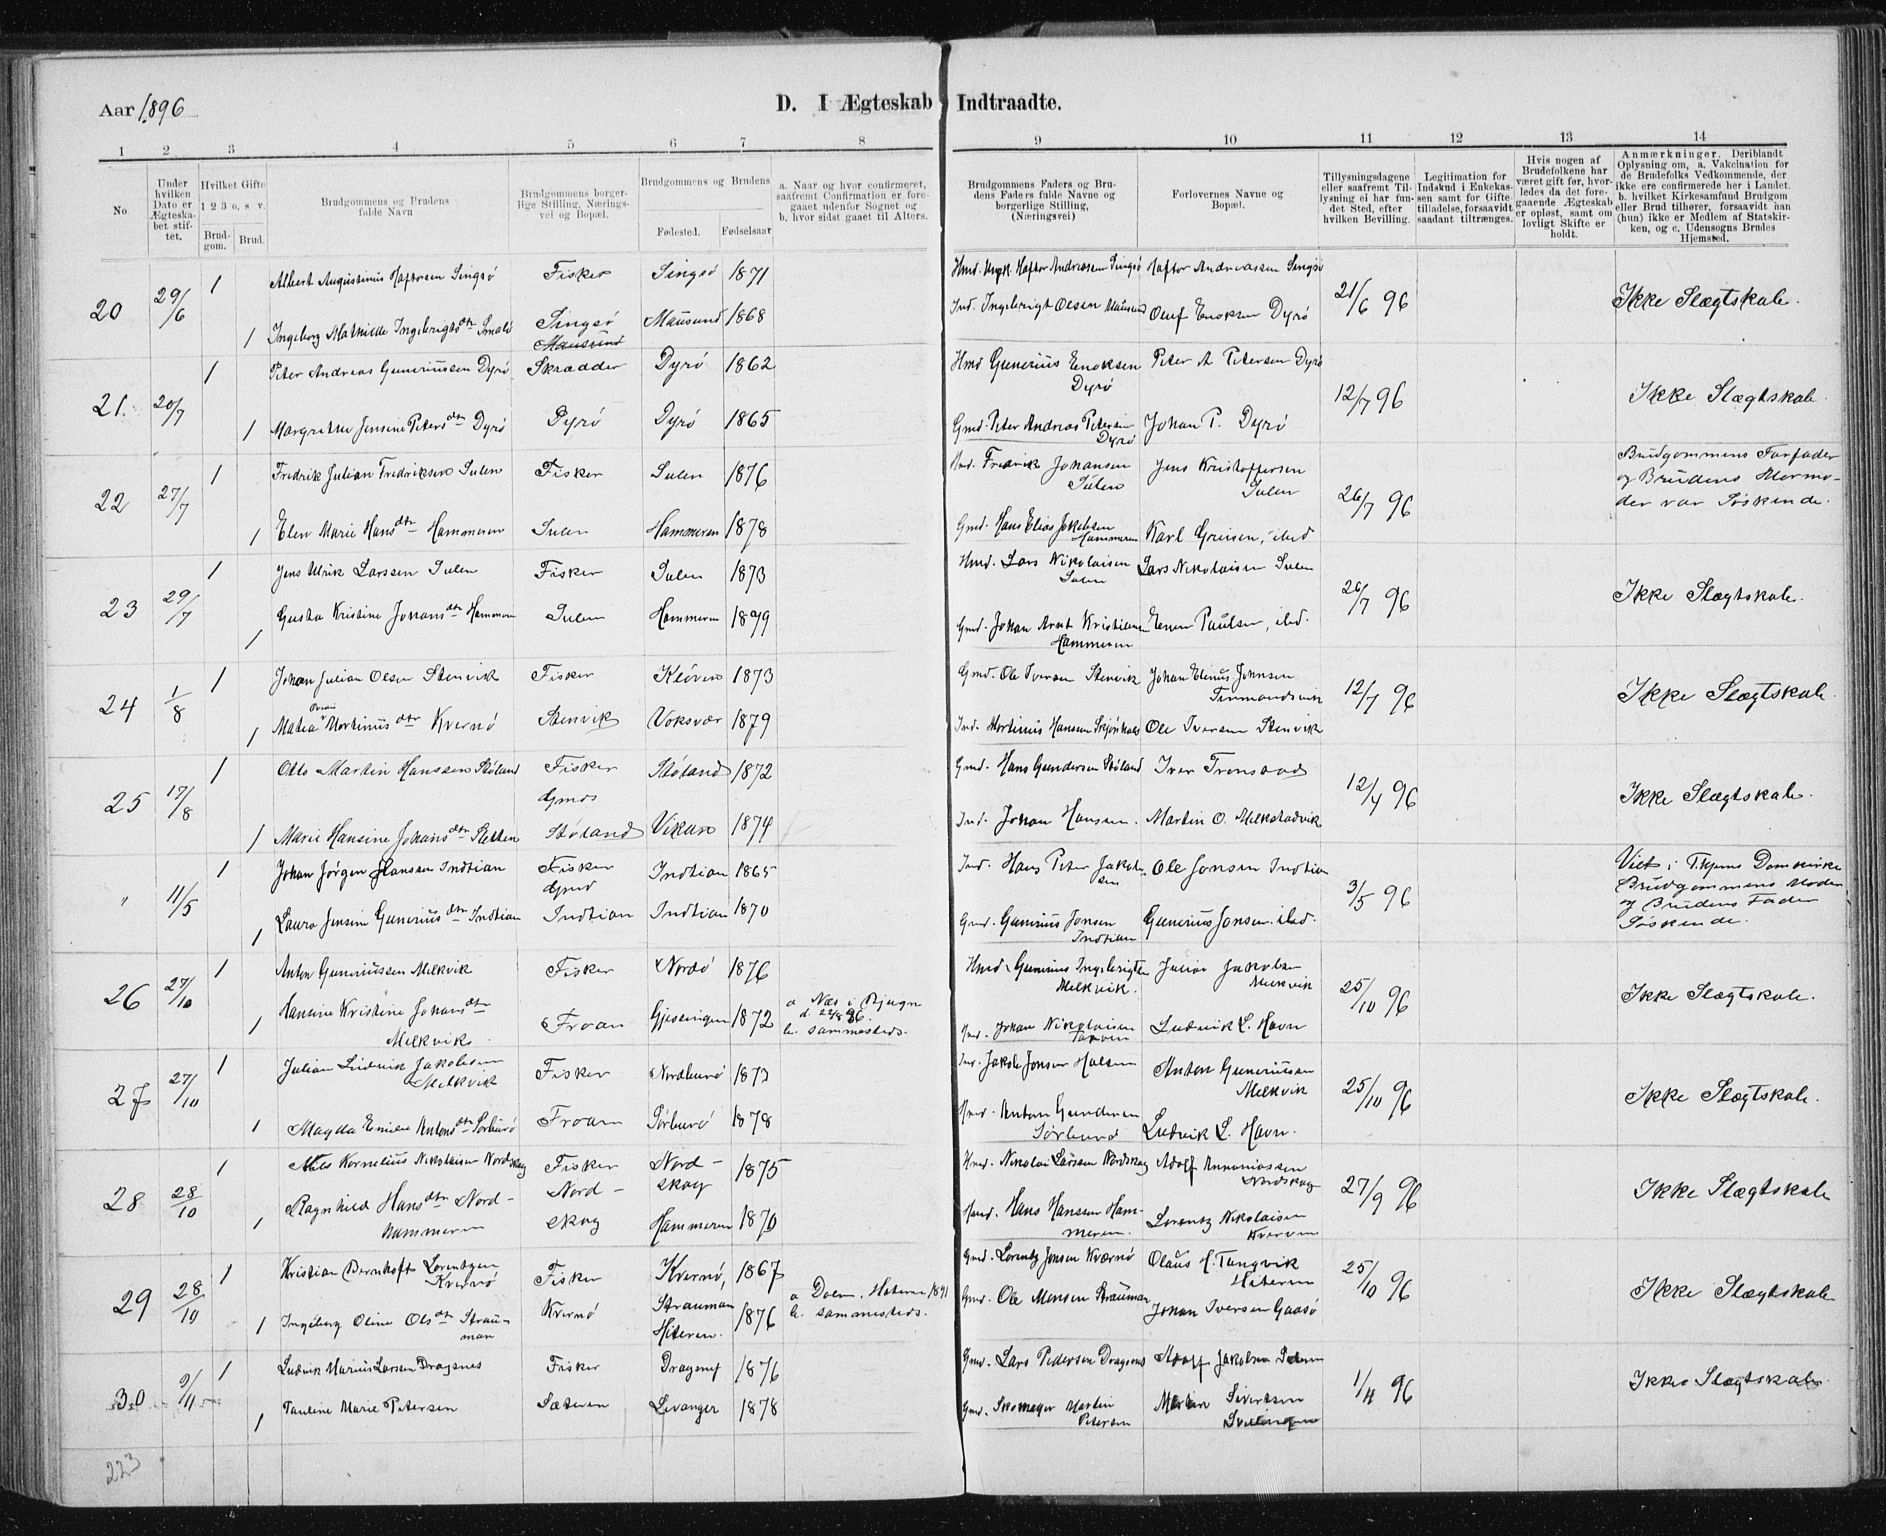 Aar 1896
D. I Ægteskab Indtraadte.
1 2 3 4 5 6 7 8 9 10 11 12 13 14
No.
Under hvilken Dato er Ægteskabet stiftet,
Hvilket Gifte 1 2 3 o. s. v.
Brudgom. Brud.
Brudgommens og Brudens fulde Navn
Brudgommens borgerlige Stilling, Næringsvei og Bopæl.
Brudgommens og Brudens
Fødested. Fødselsaar
a. Naar og hvor confirmeret, saafremt Confirmation er foregaaet udenfor Sognet og b. hvor sidst gaaet til Alters.
Brudgommens Faders og Brudens Faders fulde Navne og borgerlige Stilling, (Næringsvei)
Forlovernes Navne og Bopæl.
Tillysningsdagene eller saafremt Tillysning ei har fundet Sted, efter hvilken Bevilling.
Legitimation for Indskud i Enkekassen samt for Giftetilladelse, forsaavidt saadant tiltrænges.
Hvis nogen af Brudefolkene har været gift før, hvorledes da det foregaaende Ægteskab er opløst, samt om lovligt Skifte er holdt.
Anmærkninger. Deriblandt Oplysning om, a. Vakcination for de Brudefolks Vedkommende, der ikke ere confirmerede her i Landet. b. hvilket Kirkesamfund Brudgom eller Brud tilhører, forsaavidt han (hun) ikke er Medlem af Statskirken, og c. Udensogns Brudes Hjemsted.
20 29/6 1 Albert Augustinus Haftorsen Singsø Fisker Singsø 1871 Haftor Andreassen Singsø Haftor Andreassen Singsø 21/6 96 Ikke Slægtskab.
1 Ingeborg Mathilde Ingebrigtsdtr Smalø Singsø Mausund Mausund 1868 Ind. Ingebrigt Olsen Mausund Oluf Enoksen Dyrø
21. 20/7 1 Peter Andreas Guneriussen Dyrø Skrædder Dyrø 1862 Hmd Gunerius Enoksen Dyrø Peter A Petersen Dyrø 12/7 96 Ikke Slægtskab.
1 Margrethe Jensine Petersdtr Dyrø Dyrø Dyrø 1865 Gmd. Peter Andreas Petersen Dyrø Johan P. Dyrø
22 27/7 1 Fredrik Julian Fredriksen Sulen Fisker Sulen 1876 Hmd. Fredrik Johansen Sulen Jens Kristoffersen Sulen 26/7 96 Brudgommens Farfader og Brudens Mormoder var Søskende.
1 Elen Marie Hansdtr Hammeren Sulen Hammeren 1878 Gmd. Hans Elias Jakobsen Hammeren Karl ibid
23 29/7 1 Jens Ulrik Larssen Sulen Fisker Sulen 1873 Hmd. Lars Nikolaisen Sulen Lars Nikolaisen Sulen 26/7 96 Ikke Slægtskab.
1 Gusta Kristine Johansdtr Hammeren Sulen Hammeren 1879 Gmd. Johan Arnt Kristiansen Hammeren Paulsen, ibd.
24 1/8 1 Johan Julian Olsen Stenvik Fisker 1873 Gmd. Ole Iversen Stenvik Johan Elenus Jonsen 12/7 96 Ikke Slægtskab.
1 Matea Martinusdtr Kvernø Stenvik Voksvær 1879 Ind. Martinus Hansen Ole Iversen Stenvik
25 17/8 1 Otto Martin Hanssen Støland Fisker Gmds Støland 1872 Gmd. Hans Gundersen Støland Iver 12/4 96 Ikke Slægtskab.
1 Marie Hansine Johansdtr Sletten Støland Vikan 1874 Ind. Johan Hanssen. Martin O. Melkstadvik
" 11/5 1 Johan Jørgen Hanssen Indtian Fisker Gmd Indtian 1865 Ind. Hans Peter Jakobsen Ole Jonsen Indtian 3/5 96 Viet i Tkjems Domkirke Brudgommens Moder og Brudens Fader Søskende.
1 Laura Jensine Guneriusdtr Indtian Indtian Indtian 1870 Gmd. Gunerius Jonsen Indtian Gunerius Jonsen. ibd.
26 27/10 1 Anton Guneriussen Melkvik Fisker Nordø 1876 Hmd. Gunerius Ingebrigtsen Melkvik. Julian Jakobsen Melkvik 25/10 96 Ikke Slægtskab.
1 Hansine Kristine Johansdtr Melkvik Froan Gjessingen 1872 a Næs i Bjugn b. sammesteds. Hmd. Johan Nikolaisen Ludvik L. Havn
27 27/10 1 Julian Ludvik Jakobsen Melkvik Fisker Nordburø 1873 Ind. Jakob Jonsen Anton Gunerussen Melkvik 25/10 96 Ikke Slægtskab.
1 Magda Emilie Antonsdtr Sørburø Froan Sørburø 1878 Hmd. Anton Gundersen Ludvik L. Havn.
28 28/10 1 Nils Kornelius Nikolaisen Nordskag Fisker Nordskag 1875 Hmd. Nikolai Larssen Nordskag Adolf Annaniassen Nordskag 27/9 96 Ikke Slægtskab
1 Ragnhild Hansdtr Nordhammeren Nordskag Hammeren 1870 Hmd. Hans Hansen Hammeren. Lorentz Nikolaisen
29 28/10 1 Kristian Bernhoft Lorentzen Kvernø Fisker Kvernø, 1867 Gmd. Lorentz Jonsen Kværnø Olaus H. Tangvik Hiteren 25/10 96 Ikke Slægtskab
1 Ingeborg Oline Olsdtr Strauman Kvernø Strauman Hiteren. 1876 a Dolm, Hiteren 1891 b. sammesteds. Gmd. Ole Monsen Strauman Johan Iversen Gaasø
30 9/11 1 Ludvik Marius Larsen Dragsnes Fisker Dragsnes 1876 Gmd. Lars Pedersen Dragsnes Adolf Jakobsen 1/4 96 Ikke Slægtskab.
1 Pauline Marie Petersen Sæteren Levanger 1878 Gmd. Skomager Martin Petersen Sivertsen
223